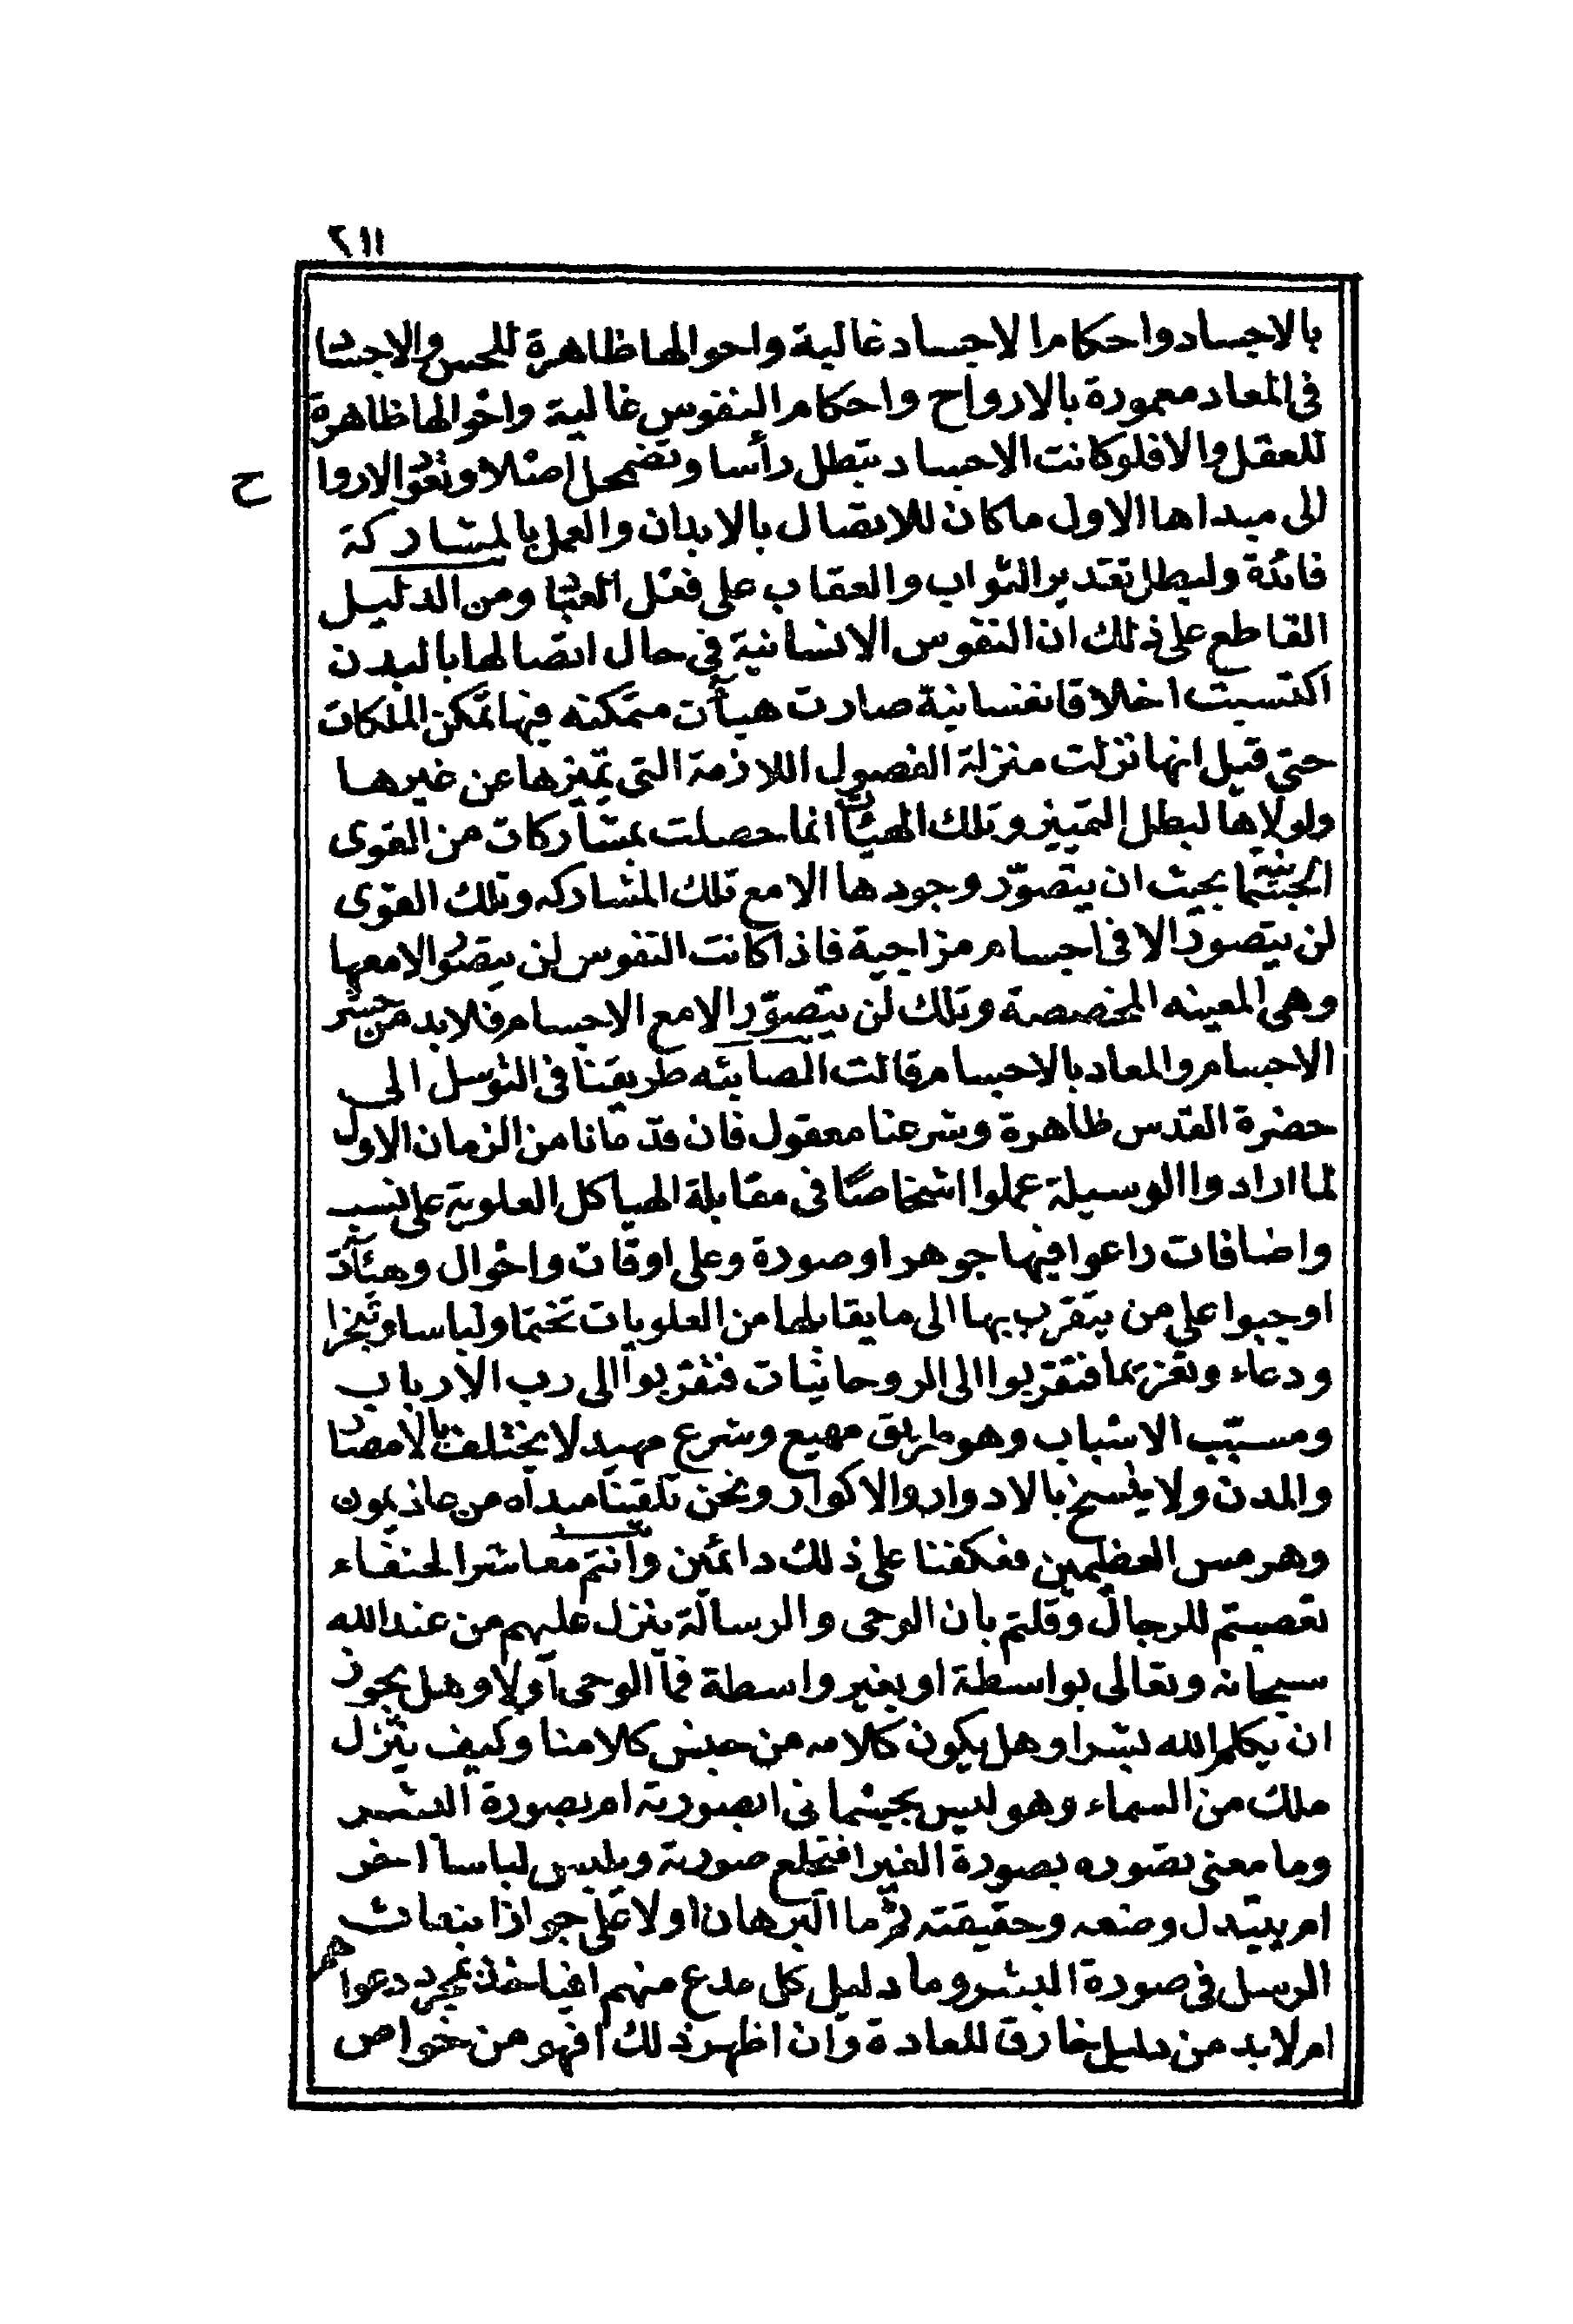 ٢١١
بالاجساد واحكام الاجساد غالبة واحوالها ظاهرة للحس والاجساد
فى المعاد معمورة بالارواح واحكام النفوس غالبة واحوالها ظاهرة
للعقل والا فلو كانت الاجساد تبطل رأسا وتضمحل اصلا وتعود الاروا
ح
الى مبداها الاول ما كان للاتصال بالابدان والعمل بالمشاركة
فائدة ولبطل تقدير الثواب والعقاب على فعل العباد ومن الدليل
القاطع على ذلك ان النفوس الانسانية فى حال اتصالها بالبدن
اكتسبت اخلاقا نفسانية صارت هيآت متمكنه فيها تمكن الملكات
حتى قيل انها نزلت منزلة الفصول اللازمة التى تميزها عن غيرها
ولولاها لبطل التمييز وتلك الهيئات انما حصلت بمشاركات من القوى
الجسمانية بحيث ان يتصور وجودها الا مع تلك المشاركه وتلك القوى
لن يتصور الا فى اجسام مزاجية فاذا كانت النفوس لن يتصور الا معها
وهى المعينه المخصصة وتلك لن يتصور الا مع الاجسام فلا بد من حشر
الاجسام والمعاد بالاجسام قالت الصابئه طريقنا فى التوسل الى
حضرة القدس ظاهرة وشرعنا معقول فان قدمانا من الزمان الاول
لما ارادوا الوسيلة عملوا اشخاصا فى مقابلة الهياكل العلوية على نسب
واضافات راعوا فيها جوهرا وصورة وعلى اوقات واحوال وهيئآت
اوجبوا على من يتقرب بها الى ما يقابلها من العلويات تختما ولباسا وتبخرا
ودعاء وتعزيما فتقربوا الى الروحانيات فتقربوا الى رب الارباب
ومسبّب الاسباب وهو طريق مهيع وشرع مهيد لا يختلف بالامصار
والمدن ولا ينسخ بالادوار والاكوار ونحن تلقينا مبدأه من عاذيمون
وهرمس العظيمين فعكفنا على ذلك دائمين وانتم معاشر الحنفاء
تعصبتم للرجال وقلتم بان الوحى والرسالة ينزل عليهم من عند الله
سبحانه وتعالى بواسطة او بغير واسطة فما الوحى اولا وهل يجوز
ان يكلم الله بشرا وهل يكون كلامه من جنس كلامنا وكيف ينزل
ملك من السماء وهو ليس بجسمانى ابصورته ام بصورة البشر
وما معنى تصوره بصورة الغير افيخلع صورته ويلبس لباسا اخر
ام يتبدل وضعه وحقيقته ثم ما البرهان اولا على جواز انبعاث
الرسل فى صورة البشر وما دليل كل مدع منهم افياخذ بمجرد دعواهم
ام لا بد من دليل خارق للعادة وان اظهر ذلك افهو من خواص